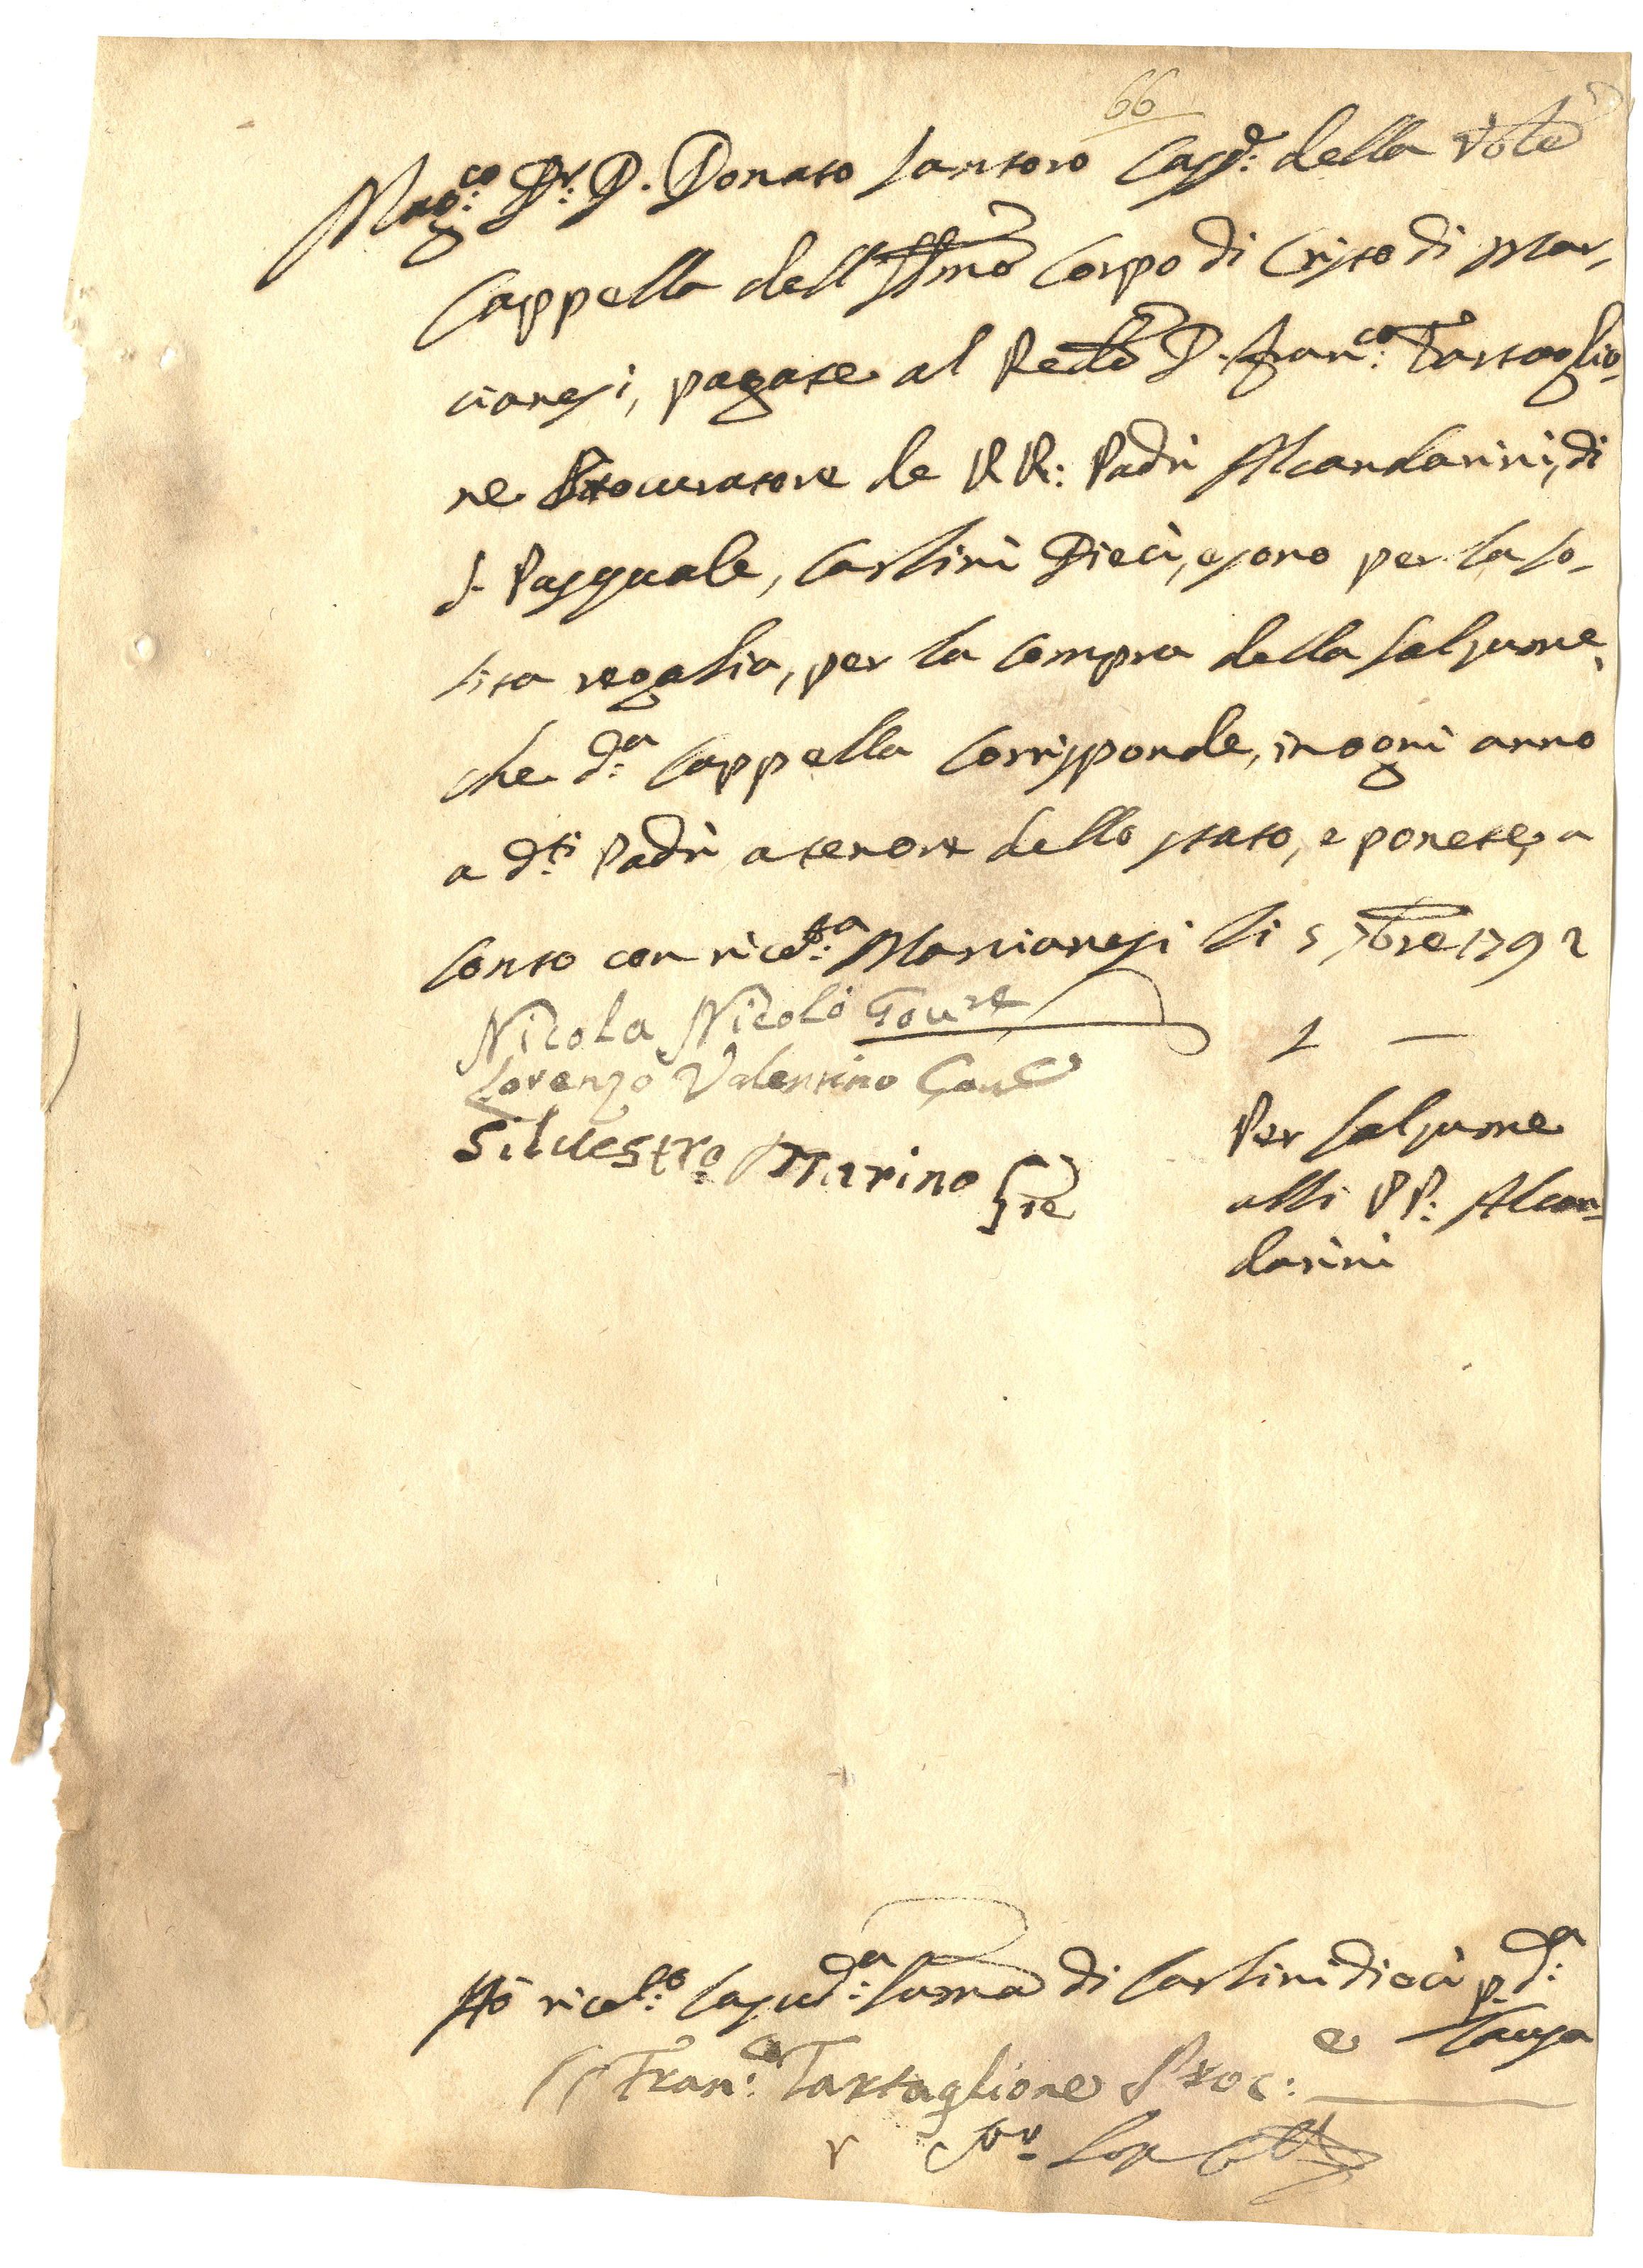 66
Mag:co Dr: D. Donato Santoro Cass:e della Vble
Cappella dell SSmo Corpo di Cristo di Mar,
cianesi, pagate al Redo D. Fran:co Tartaglio,
ne Procuratore de RR: Padri Alcandarini, di
S. Pasquale, Carlini Dieci, e sono per la so,
lita regalia, per la compra della salsume,
che d:a Cappella corrisponde, in ogni anno
a d:ti Padri a tenore dello stato, e ponete, a
conto con ricet:a Marcianesi li 5 7bre 1792
Nicola Nicolò Gou:re
Lorenzo Valentino Gou:e
Siluestro Marino
1 —
Per salsume
alli PP: Alcan=
darini
Hò ricel:o la sud:a summa di Carlini dieci p. d:a
causa
Fran:co Tartaglione Proc:e